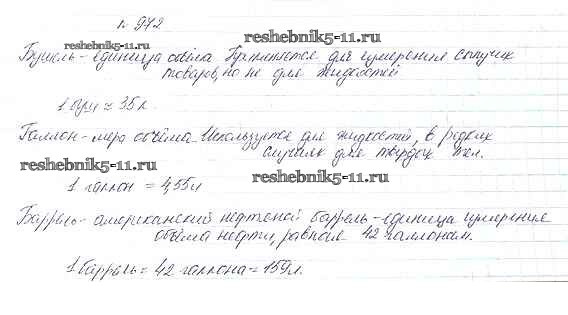 № 972
reshebnik5-11.ru
Бушель - единица объёма. Применяется для измерения сыпучих
товаров, но не для жидкостей
reshebnik5-11.ru
1 буш ≈ 35 л.
Галлон - мера объёма. Используется для жидкостей, в редких
случаях для твердых тел.
reshebnik5-11.ru
reshebnik5-11.ru
1 галлон = 4,55 л
Баррель - американский нефтяной баррель - единица измерения
объёма нефти, равная 42 галлонам.
1 баррель = 42 галлона = 159 л.
reshebnik5-11.ru